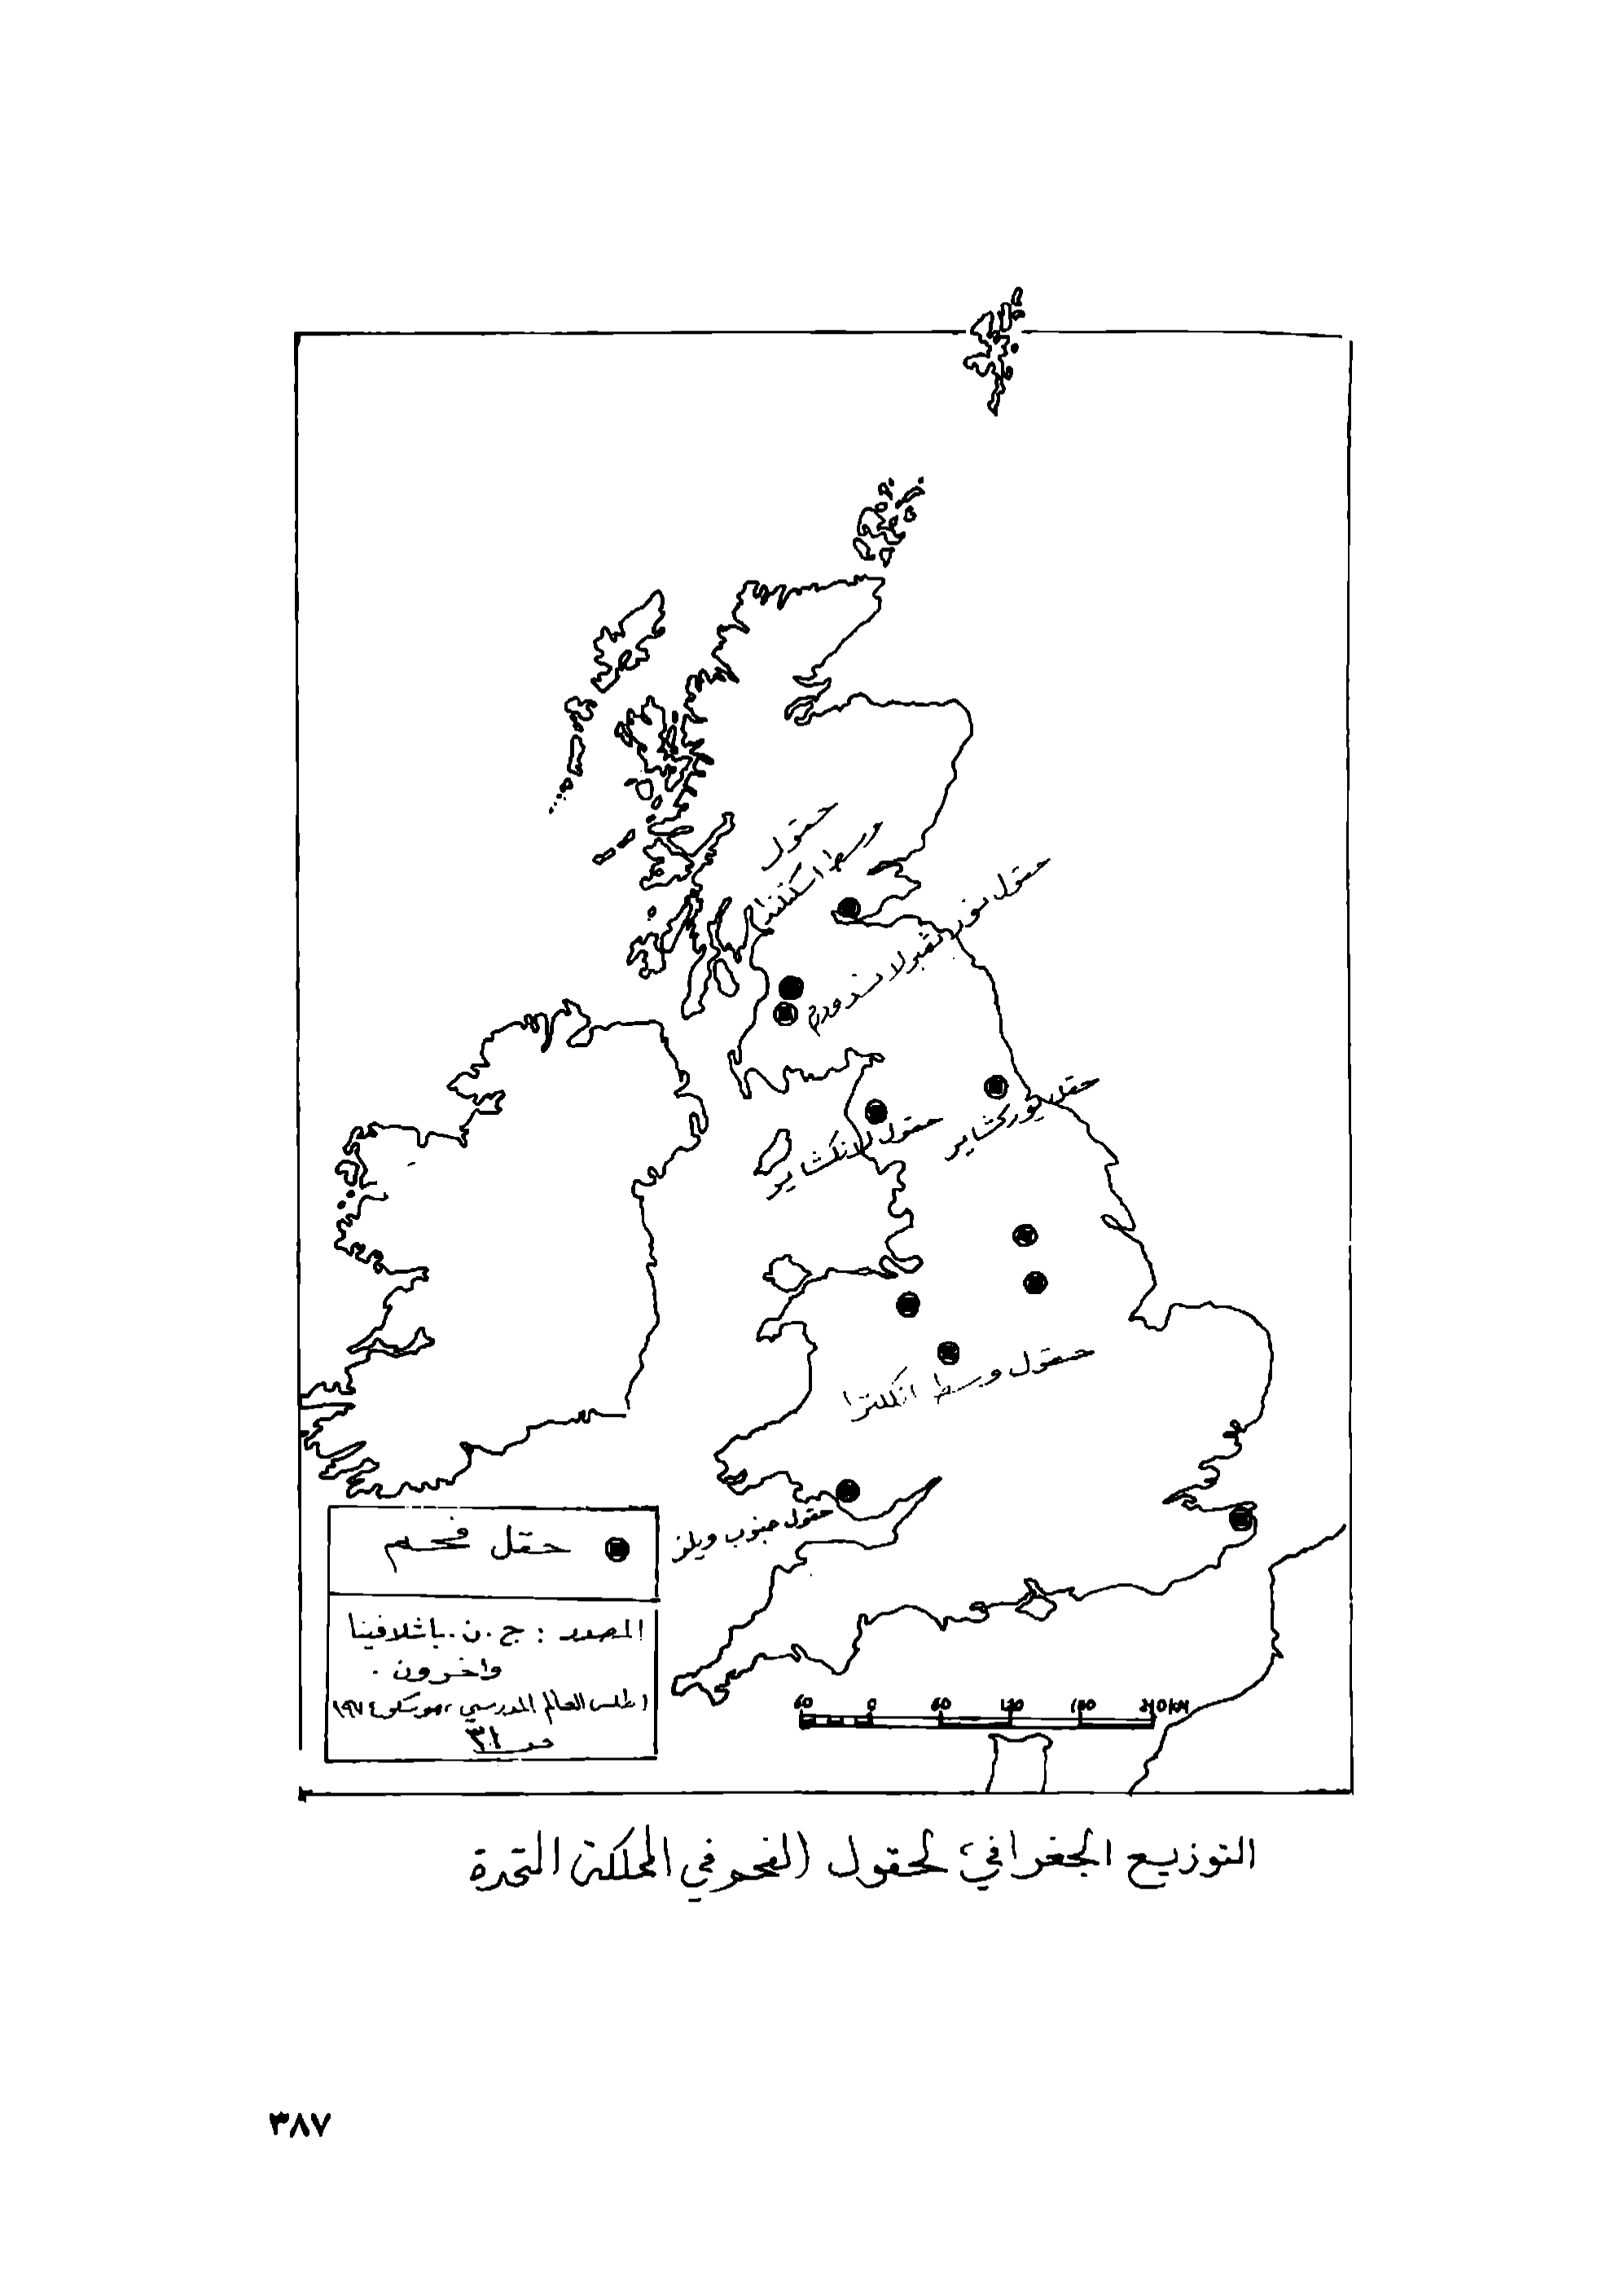 حقول
وسط اسكتلندا
حقول نورثمبرلاند ودرم
حقل يوركشاير
حقول لانكشاير
حقول وسط انكلترا
حقول جنوب ويلز
حقل فحم
المصدر : ج . ن . باشلافينا
واخرون .
اطلس العالم المدرسي ، موسكو ١٩٧٤
ص ٣١
60 0 60 120 180 240 KM
التوزيع الجغرافي لحقول الفحم في المملكة المتحدة
٣٨٧